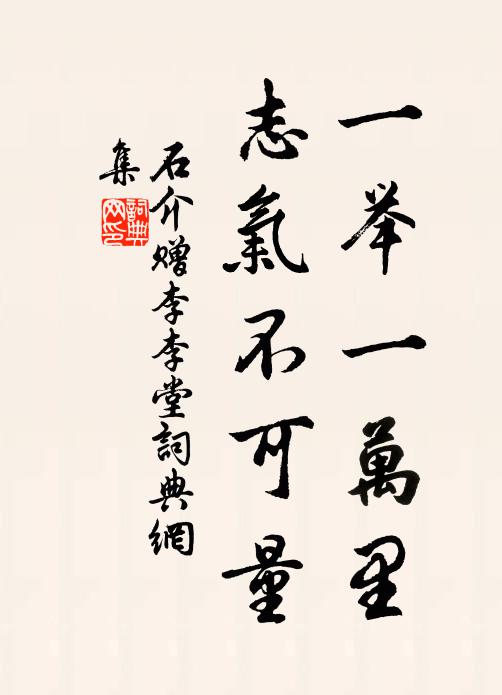 一举一萬里
志氣不可量
石介赠李李堂詞典網
集
詞典
网印